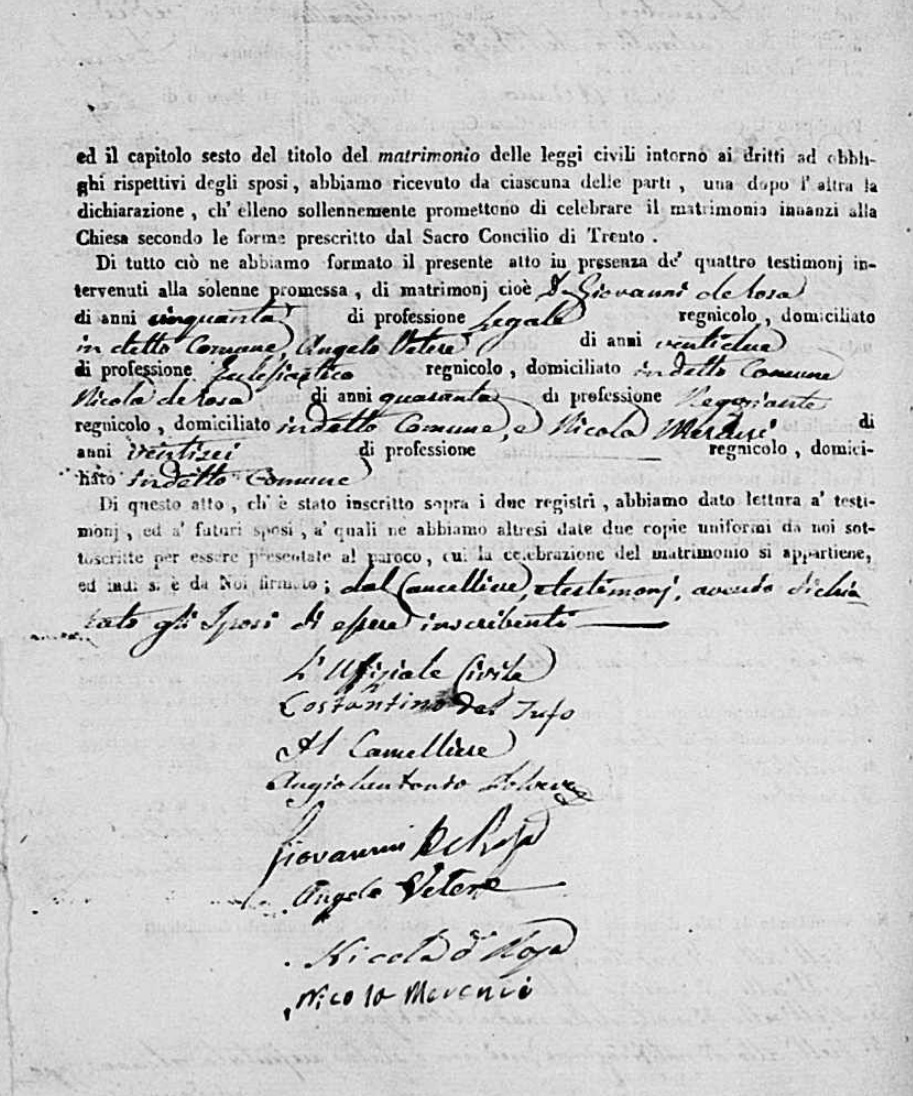 ed il capitolo sesto del titolo del matrimonio delle leggi civili intorno ai dritti ad obbli-
ghi rispettivi degli sposi, abbiamo ricevuto da ciascuna delle parti, una dopo l'altra la
dichiarazione, ch'elleno sollennemente promettono di celebrare il matrimonio innanzi alla
Chiesa secondo le forme prescritto dal Sacro Concilio di Trento.
Di tutto ciò ne abbiamo formato il presente atto in presenza de' quattro testimonj in-
tervenuti alla solenne promessa, di matrimonj cioè D. Giovanni de Rosa
di anni cinquanta di professione Legale regnicolo, domiciliato
in detto Comune, Angelo Vetere di anni ventidue
di professione Eclesiastico regnicolo, domiciliato in detto Comune
Nicola de Rosa di anni quaranta di professione Negoziante
regnicolo, domiciliato in detto Comune, e Nicola di
anni ventisei di professione regnicolo, domici-
liato in detto Comune
Di questo atto, ch'è stato inscritto sopra i due registri, abbiamo dato lettura a' testi-
monj, ed a' futuri sposi, a' quali ne abbiamo altresì date due copie uniformi da noi sot-
toscritte per essere presentate al paroco, cui la celebrazione del matrimonio si appartiene,
ed indi si è da Noi firmato; dal Cancelliere, e testimonj, avendo dichia
rato gli Sposi di essere inscribenti
L'Uffiziale Civile
Costantino del Tufo
Il Cancelliere
Angiolantonio
Giovanni De Rosa
Angelo Vetere
Nicola de Rosa
Nicola